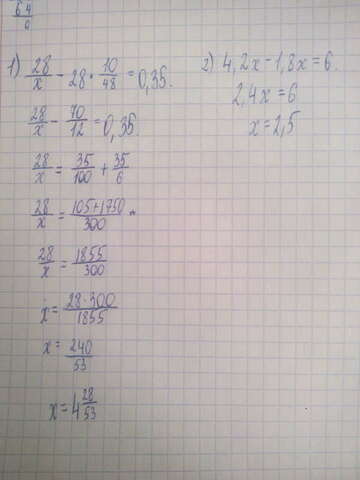 64/6
1) 28/x - 28 · 10/48 = 0,35.
28/x - 70/12 = 0,35.
28/x = 35/100 + 35/6
28/x = 105+1750/300
28/x = 1855/300
x = 28·300/1855
x = 240/53
x = 4 28/53
2) 4,2x - 1,8x = 6.
2,4x = 6
x = 2,5